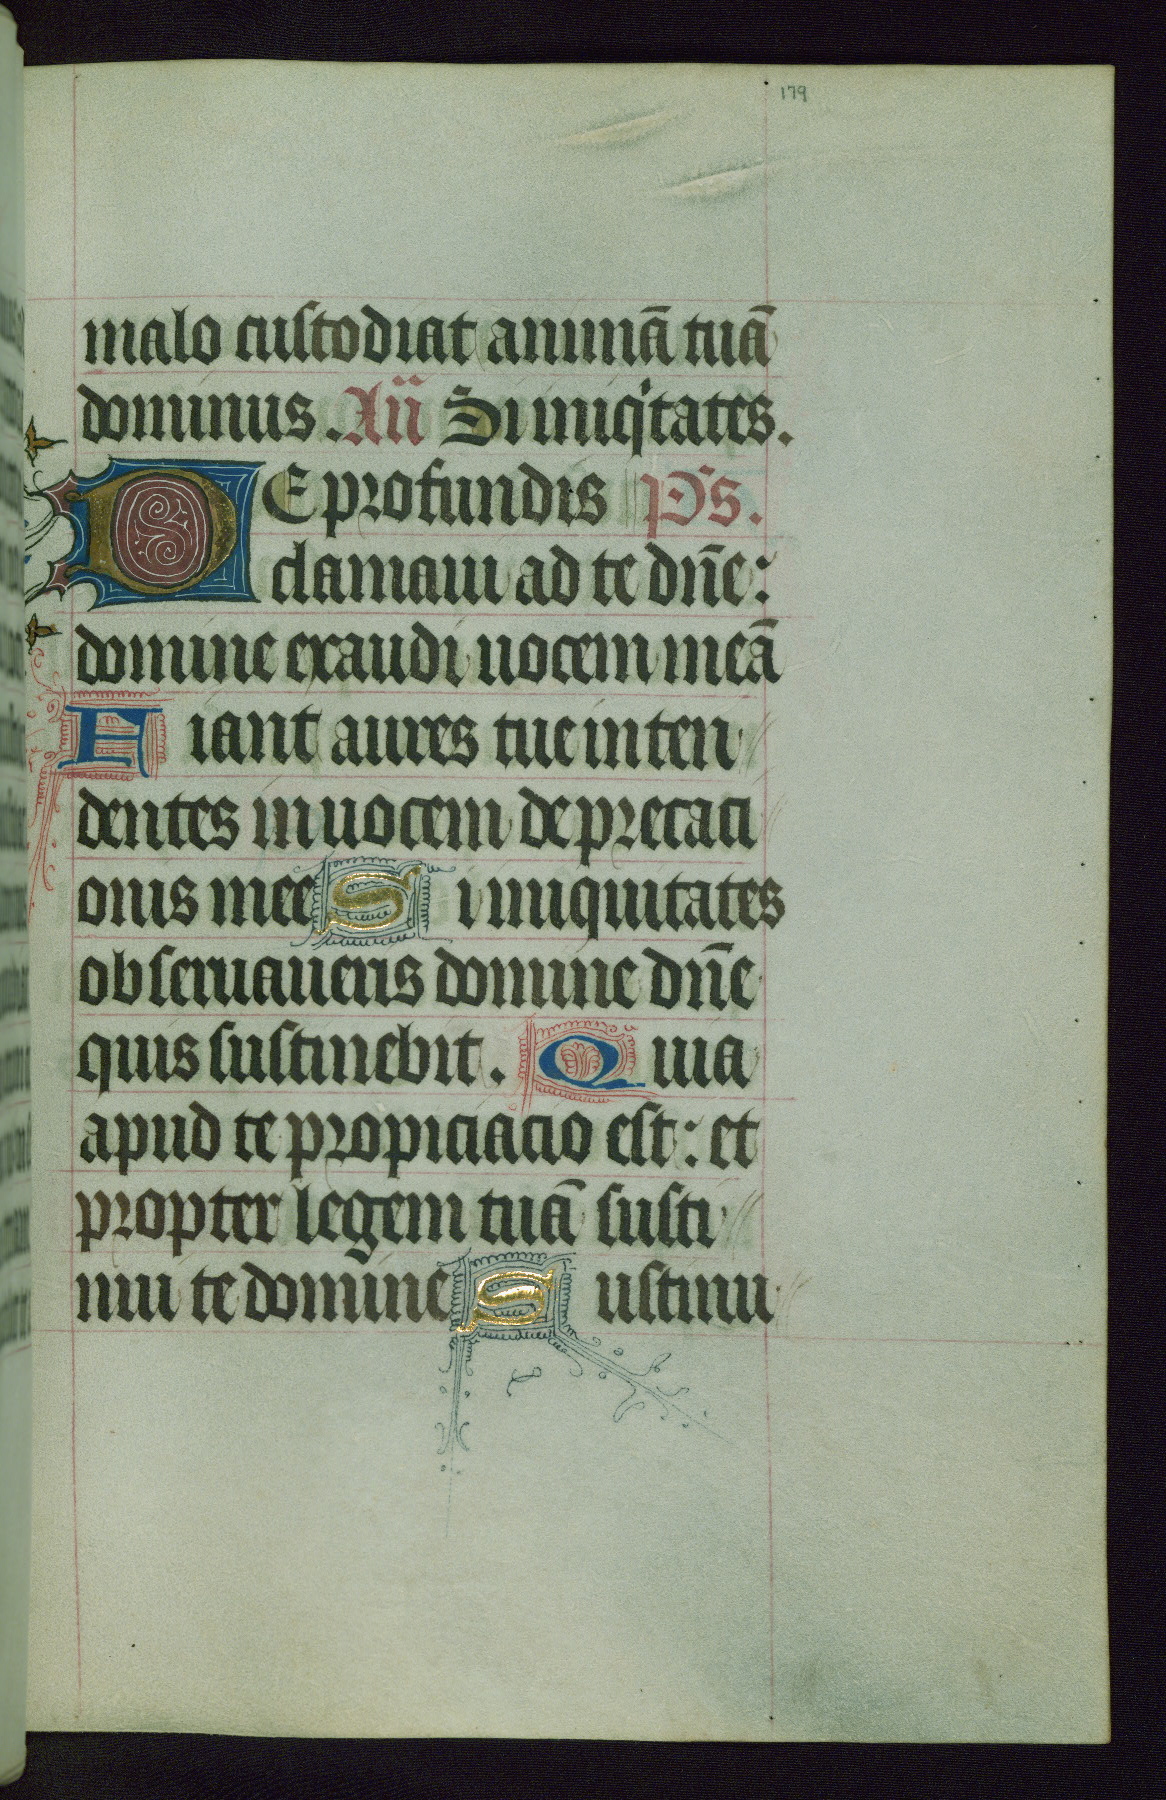 179
malo custodiat animā tuā
dominus. Añ Si iniqⁱtates.
DE profundis p̄s.
clamaui ad te dn̄e:
domine exaudi uocem meā
Fiant aures tue inten
dentes in uocem deprecaci
onis mee Si iniquitates
obseruaueris domine dn̄e
quis sustinebit. Quia
apud te propiciacio est: et
propter legem tuā susti
nui te domine Sustinu